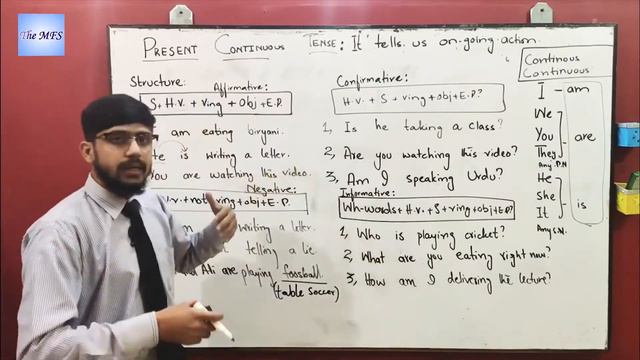 The MFS
Present Continuous Tense: It tells us on-going action.
Structure: Affirmative:
S + H.v. + Ving + Obj + E.P.
am eating biryani.
is writing a letter.
You are watching this video.
Negative:
+ not + ving + obj + E.P.
writing a letter.
telling a lie
Ali are playing foosball.
(table soccer)
Confirmative:
H.v. + S + ving + obj + E.P?
1, Is he taking a class?
2, Are you watching this video?
3, Am I speaking Urdu?
Informative:
Wh-words + H.v. + S + ving + obj + E.P?
1, Who is playing cricket?
2, What are you eating right now?
3, How am I delivering the lecture?
Continous
Continuous
I - am
We
You
They
Any P.N
are
He
She
It
Any S.N.
is